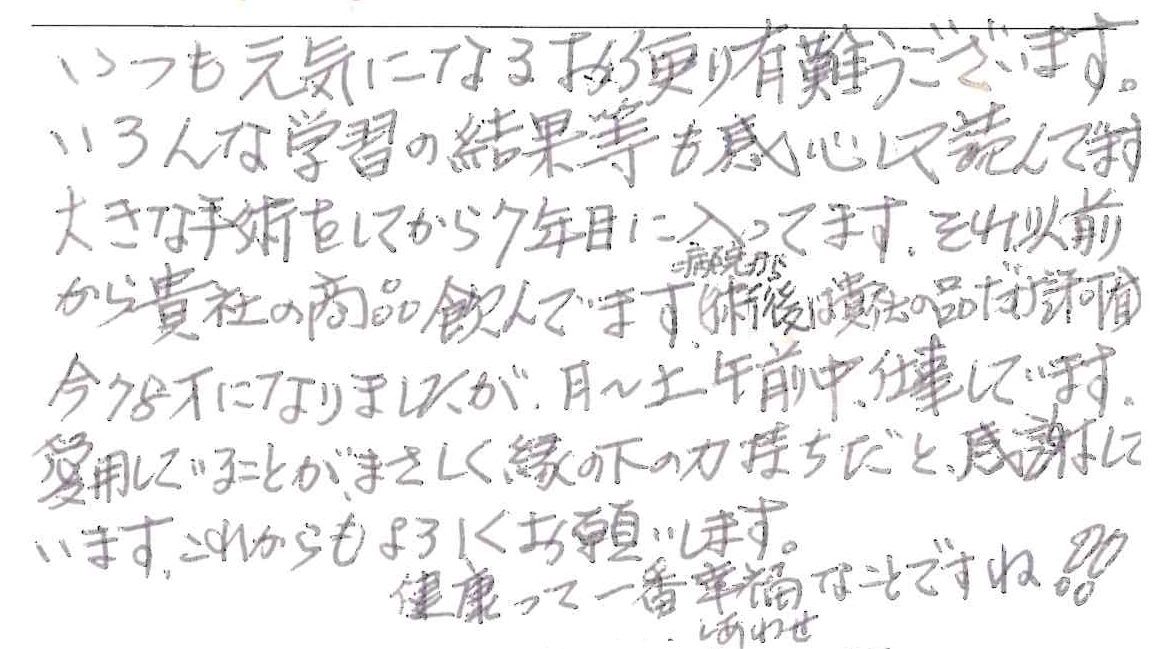 いつも元気になるお便り有難うございます。
いろんな学習の結果等も感心して読んでます
大きな手術をしてから7年目に入ってます。それ以前
病院から
から貴社の商品飲んでいます。術後は貴社の品だけ許可
今78才になりましたが、月～土、午前中、仕事しています。
愛用していることが、まさしく縁の下の力持ちだと、感謝して
います。これからもよろしくお願いします。
健康って一番幸福なことですね!!
しあわせ